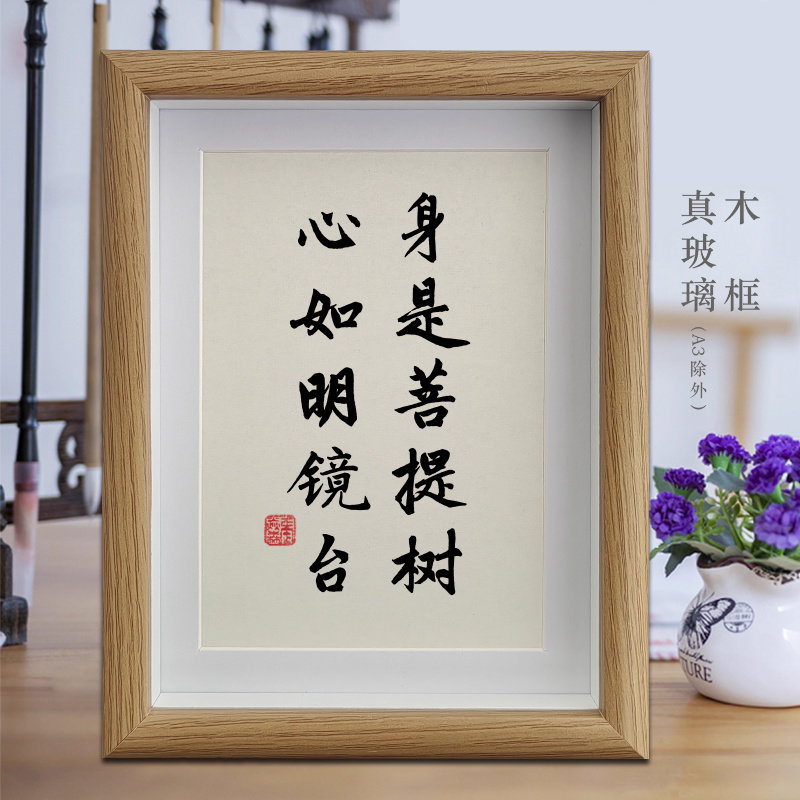 身是菩提树
心如明镜台
木框
真玻璃
(A3除外)
TURE